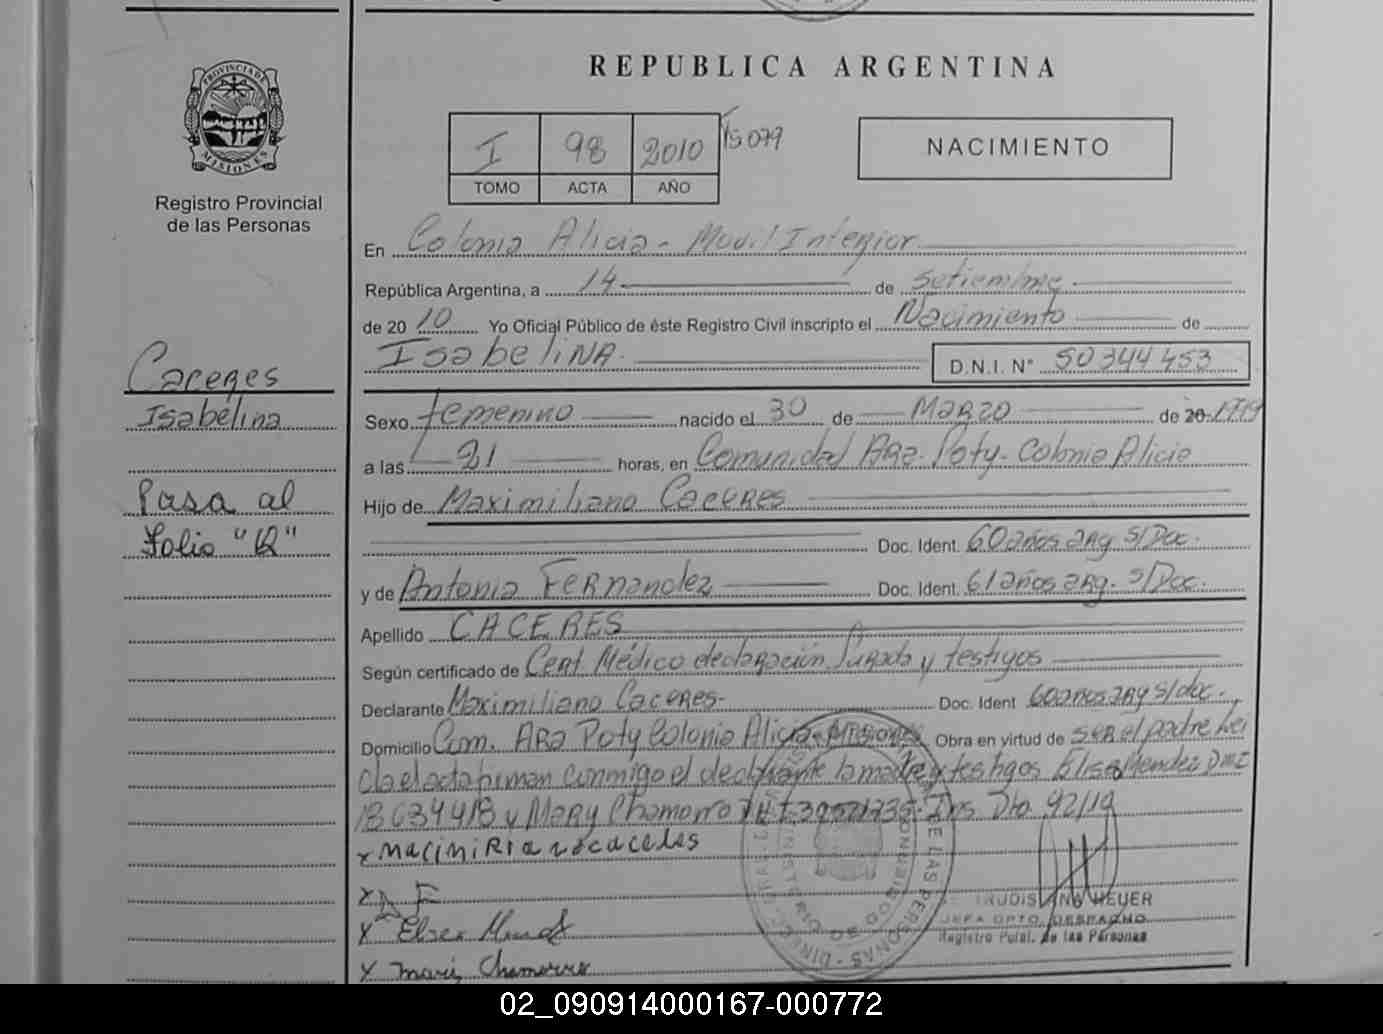 REPUBLICA ARGENTINA
PROVINCIA DE
MISIONES
Registro Provincial
de las Personas
I 98 2010
TOMO ACTA AÑO
NACIMIENTO
En Colonia Alicia - Movil Interior
República Argentina, a 14 de setiembre
de 2010 Yo Oficial Público de éste Registro Civil inscripto el Nacimiento de
IsabeliNA. D.N.I. N° 50344453
Caceres
Isabelina
Pasa al
Folio "R"
Sexo femenino nacido el 30 de Marzo de 20
a las 21 horas, en Comunidad Ara Poty - Colonia Alicia
Hijo de Maximiliano Caceres
Doc. Ident. 60 años arg. s/Doc.
y de Antonia Fernandez Doc. Ident. 61 años arg. s/Doc.
Apellido CACERES
Según certificado de Cert. Médico declaración Jurada y testigos
Declarante Maximiliano Caceres - Doc. Ident 60 años arg s/doc.
Domicilio Com. Ara Poty Colonia Alicia - Misiones Obra en virtud de ser el padre Lei
da el acta firman conmigo el declarante la madre y testigos Elisa Mendez DNI
18634418 y Mary Chamorro Ins. Dto. 92/19
x
x F
x Elsa
x mari Chamorro
HEUER
JEFA DPTO. DESPACHO
Registro Pcial. de las Personas
02_090914000167-000772